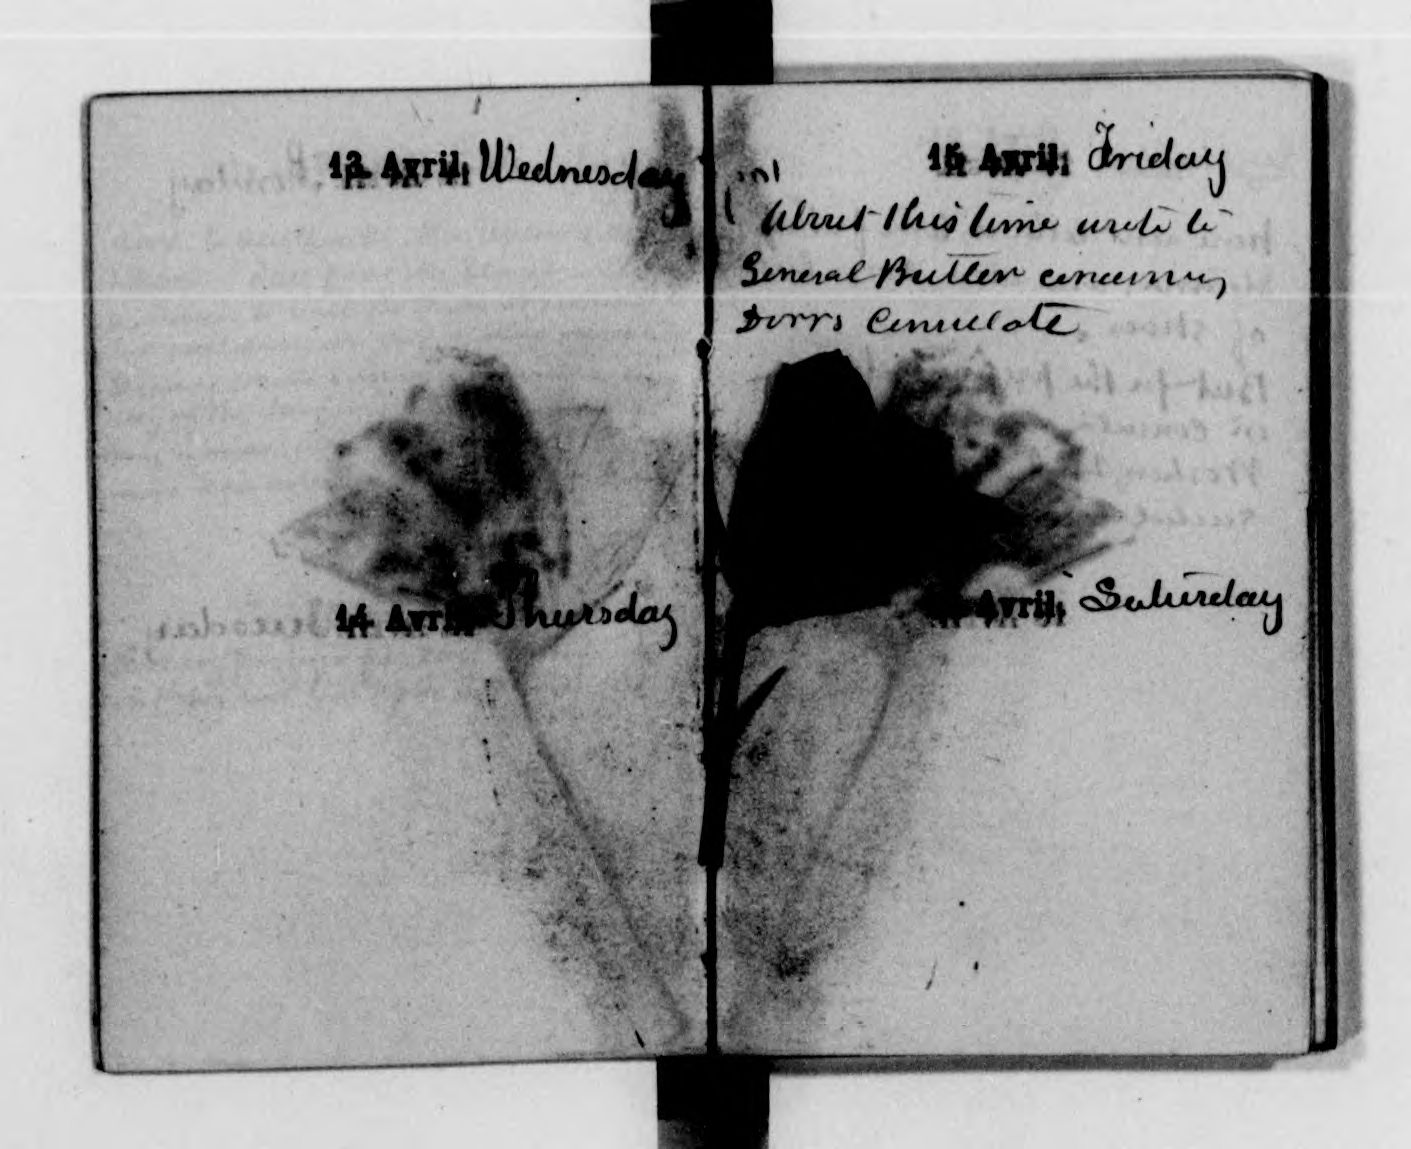 13. Avril. Wednesday
14. Avril. Thursday
15. Avril. Friday
About this time wrote to
General Butler concerning
Dorrs Consulate
Avril. Saturday